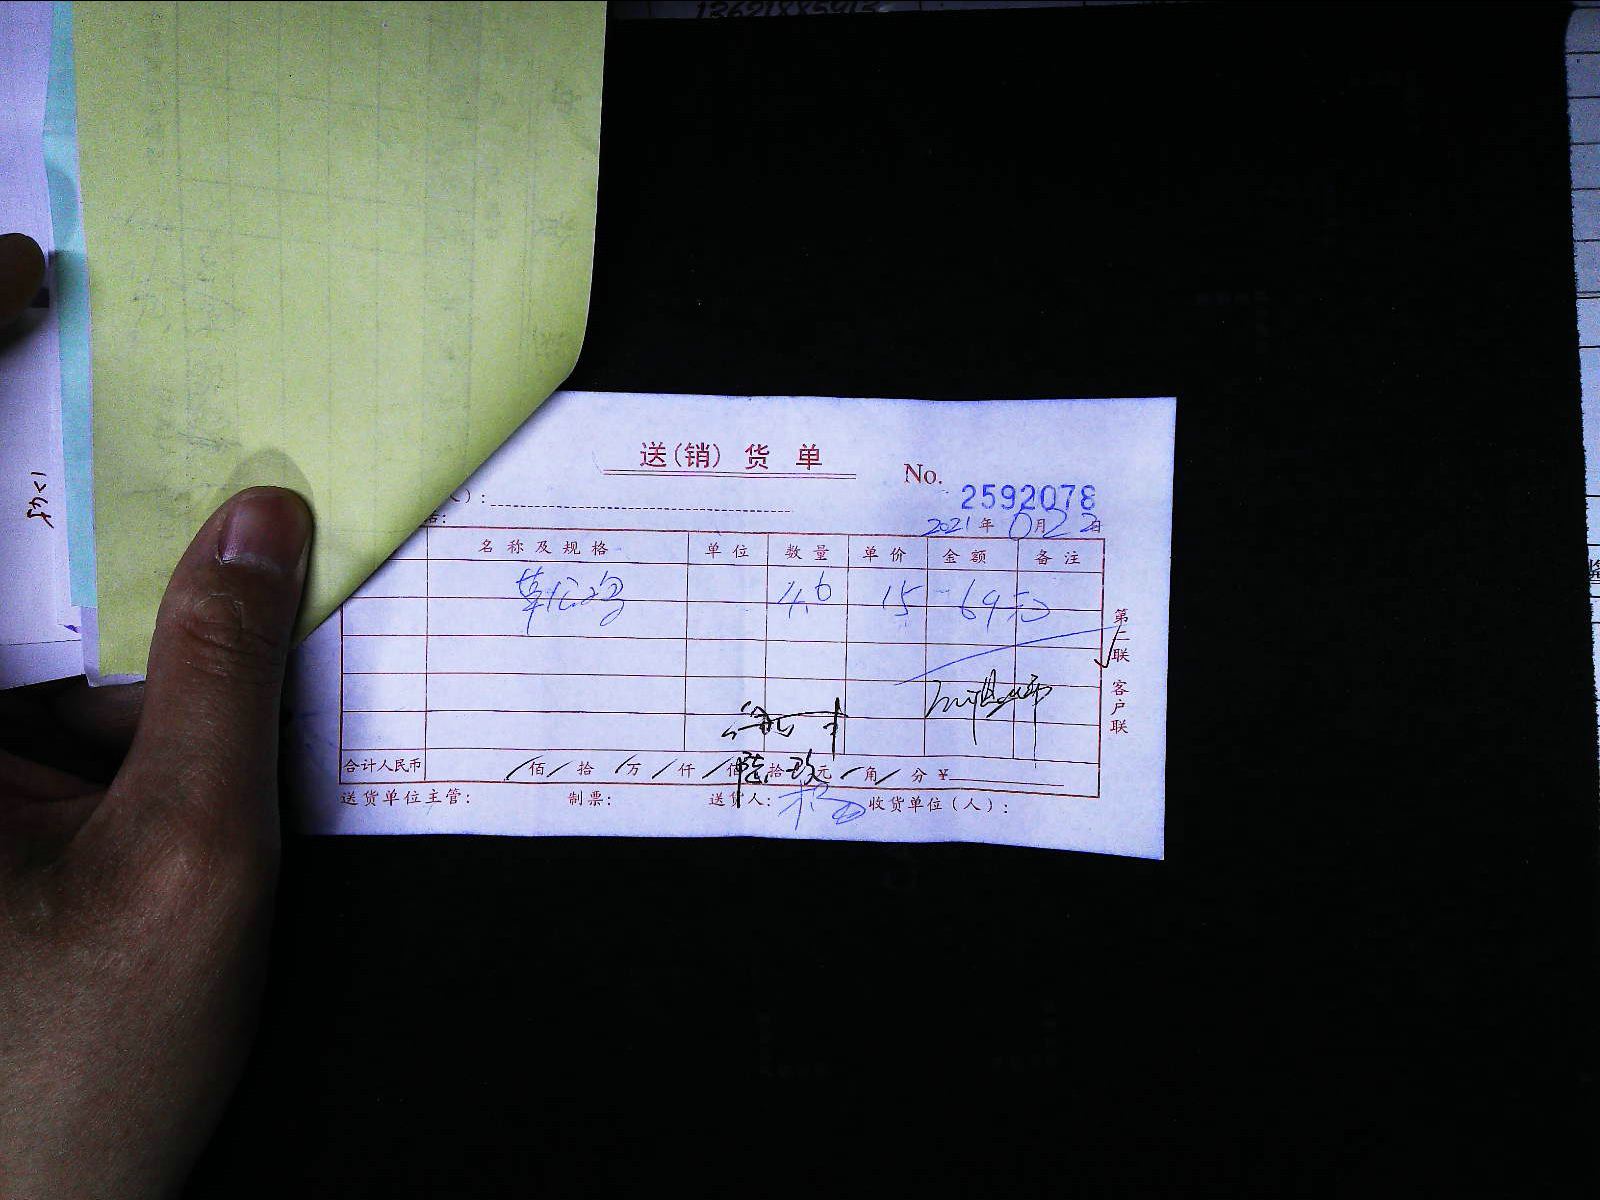 送(销)货单
No.
2592078
2021年6月22日
名称及规格 单位 数量 单价 金额 备注
草公鸡 4.6 15 69元
第二联 客户联
合计人民币 佰 拾 万 仟 佰 陆拾 玖元 角 分 ¥
送货单位主管: 制票: 送货人: 杨 收货单位(人):